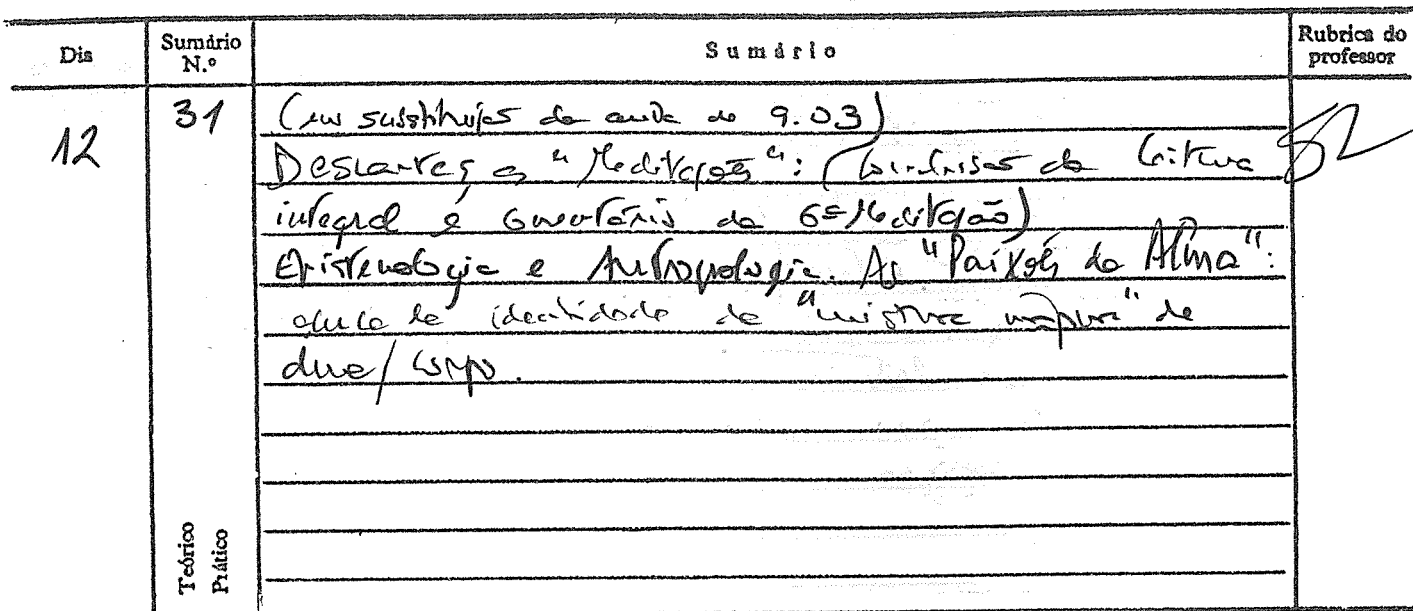 Dia
Sumário N.º
Sumário
Rubrica do professor
12
31
(em substituição da aula de 9.03)
Descartes e as "Meditações": (Conclusão da leitura
integral e comentário da 6ª Meditação)
Epistemologia e Antropologia. As "Paixões da Alma":
identidade de "mistura" de
alma/corpo.
Teórico
Prático